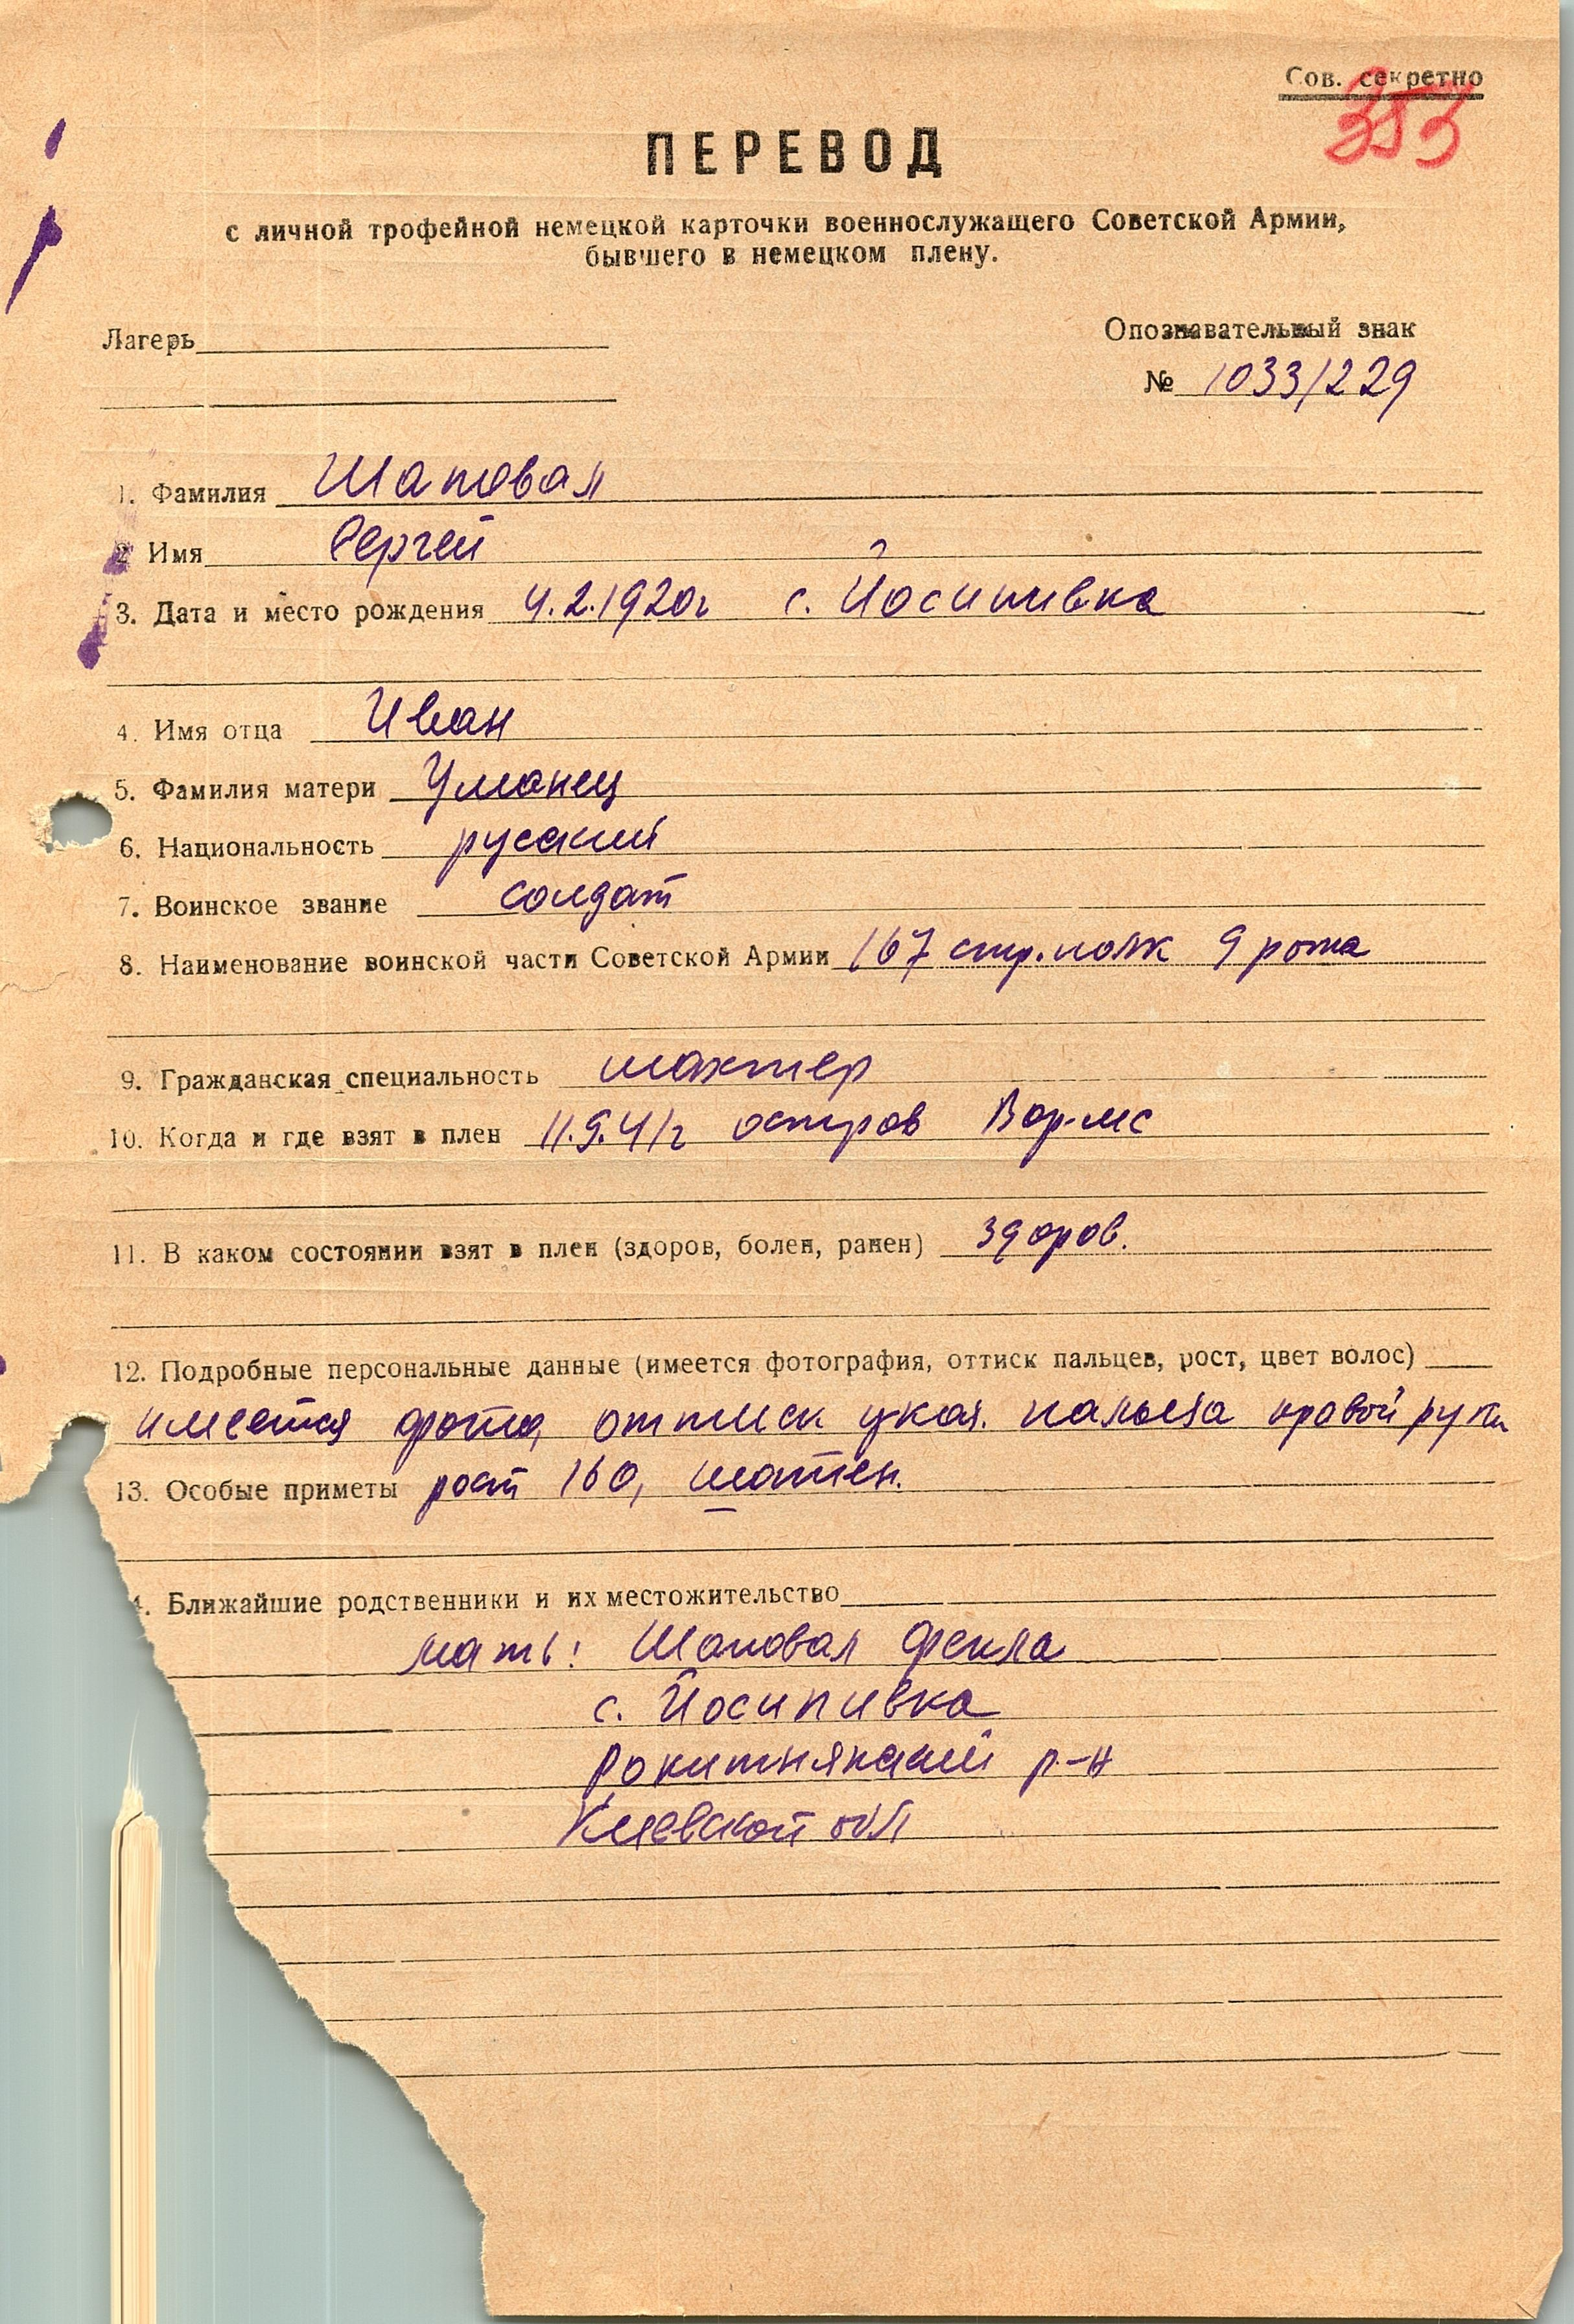 Сов. секретно
353
ПЕРЕВОД
с личной трофейной немецкой карточки военнослужащего Советской Армии,
бывшего в немецком плену.
Лагерь
Опознавательный знак
№ 1033/229
1. Фамилия Шаповал
2 Имя Сергей
3. Дата и место рождения 4.2.1920г с. Йосипивка
4. Имя отца Иван
5. Фамилия матери Уманец
6. Национальность русский
7. Воинское звание солдат
8. Наименование воинской части Советской Армии 167 стр. полк 9 рота
9. Гражданская специальность шахтер
10. Когда и где взят в плен 11.9.41г остров Вормс
11. В каком состоянии взят в плен (здоров, болен, ранен) здоров.
12. Подробные персональные данные (имеется фотография, оттиск пальцев, рост, цвет волос)
имеется фото, оттиск указ. пальца правой руки
13. Особые приметы рост 160, шатен.
4. Ближайшие родственники и их местожительство
мать: Шаповал Фекла
с. Йосипивка
Рокитнянский р-н
Киевской обл